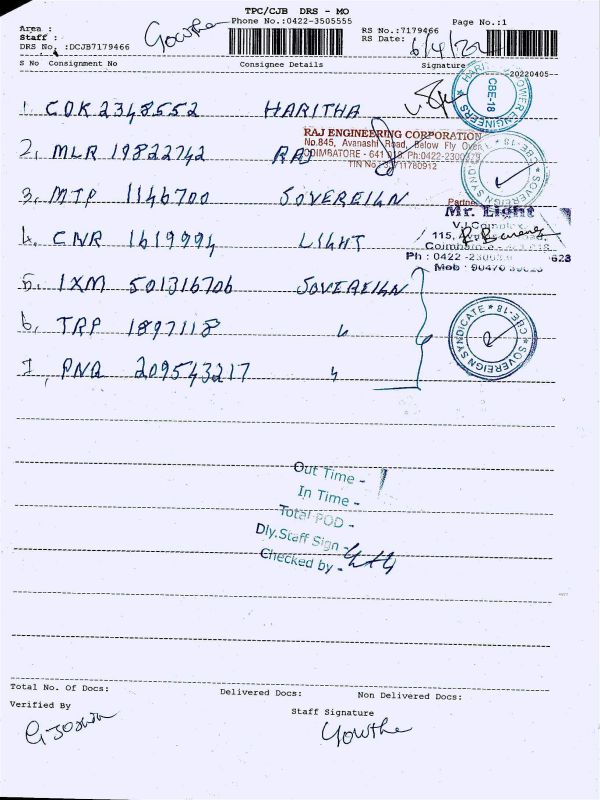 TPC/CJB DRS - MO
Area :
Staff :
Gowthe
Phone No.:0422-3505555
Page No.:1
DRS No. :DCJB7179466
RS No.:7179466
RS Date: 6/4/22
S No Consignment No Consignee Details Signature
20220405
1. COK 2348552 HARITHA
CBE-18
RAJ ENGINEERING CORPORATION
No.845, Avanashi Road, Below Fly Over
COIMBATORE - 641 018. Ph:0422-2300
2, MLR 19822742 RAJ
SOVEREIGN SYNDICATE * CBE-18 *
3. MTP 1146700 SOVEREIGN
Mr. Light
V.J.Complex
115,
4. CNR 1619994 LIGHT
Ph : 0422 -
Mob : 90470
5. IXM 501316706 SOVEREIGN
6, TRP 1897118 "
SOVEREIGN SYNDICATE * CBE-18 *
7, PNQ 209543217 "
Out Time -
In Time -
Total POD -
Dly.Staff Sign -
Checked by -
Total No. Of Docs: Delivered Docs: Non Delivered Docs:
Verified By
Staff Signature
Gowthe